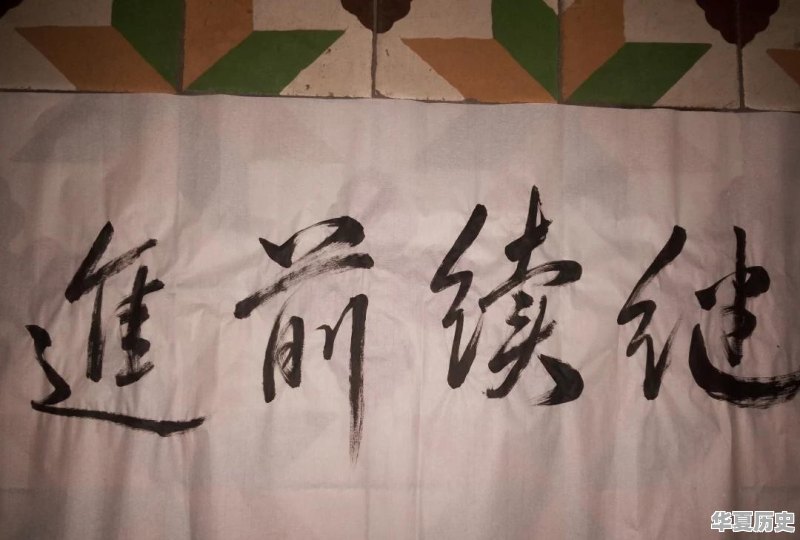 继续前進
华夏历史